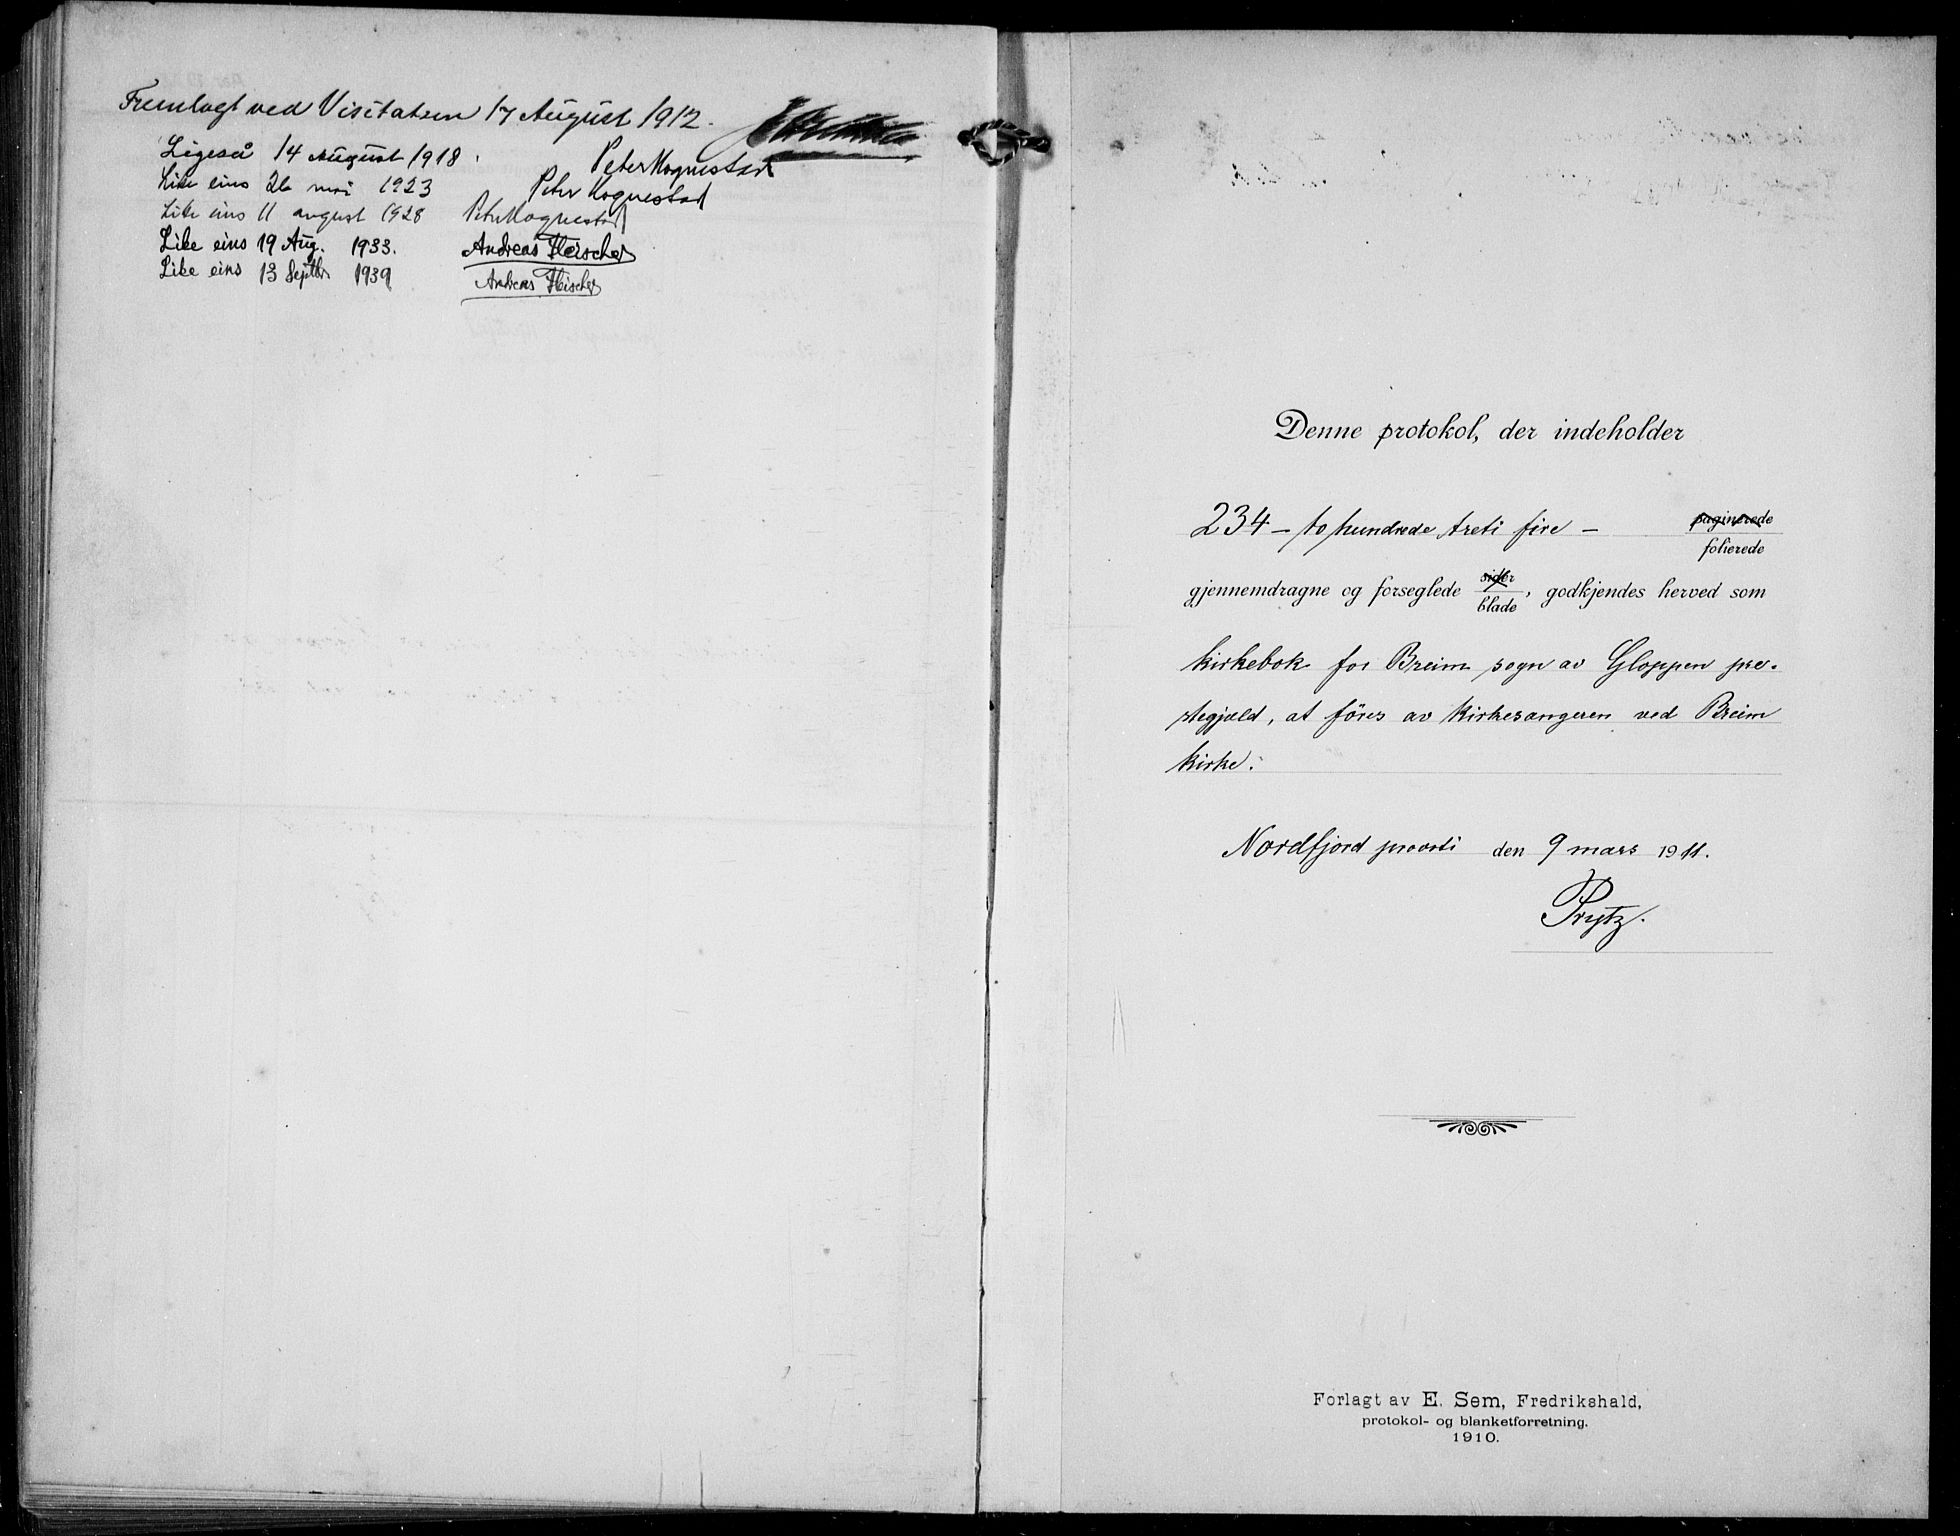 Fremlagt ved Visitatsen 17 August 1912.
Ligeså 14 August 1918. Peter Hognestad
Like eins 26 mai 1923 Peter Hognestad
Like eins 11 august 1928 Peter Hognestad
Like eins 19 Aug. 1933. Andreas Fleischer
Like eins 13 Septbr 1939 Andreas Fleischer
Denne protokol, der indeholder
234 – to hundrede treti fire – paginerede
folierede
gjennemdragne og forseglede sider
blade, godkjendes herved som
kirkebok for Breim sogn av Gloppen pre-
stegjæld, at föres av kirkesangeren ved Breim
kirke.
Nordfjord provsti den 9 mars 1911.
Prytz.
Forlagt av E. Sem, Fredrikshald,
protokol- og blanketforretning.
1910.